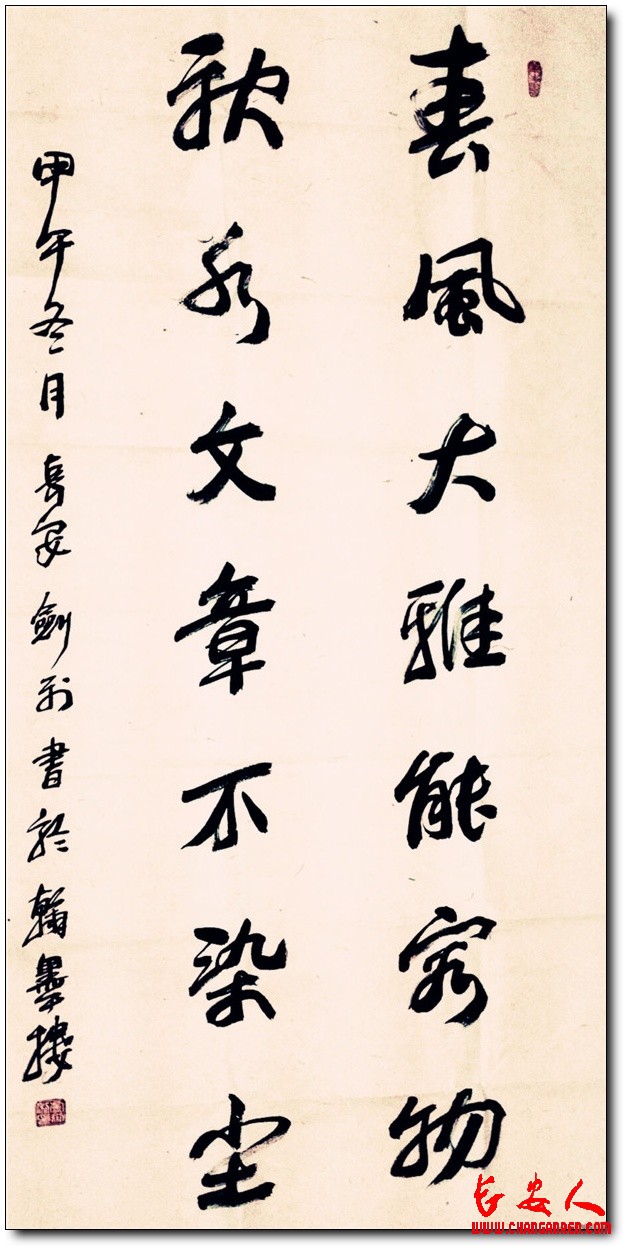 春風大雅能容物
秋水文章不染尘
甲午冬月長安劍利書於翰墨楼
长安人
WWW.CHANGANREN.COM